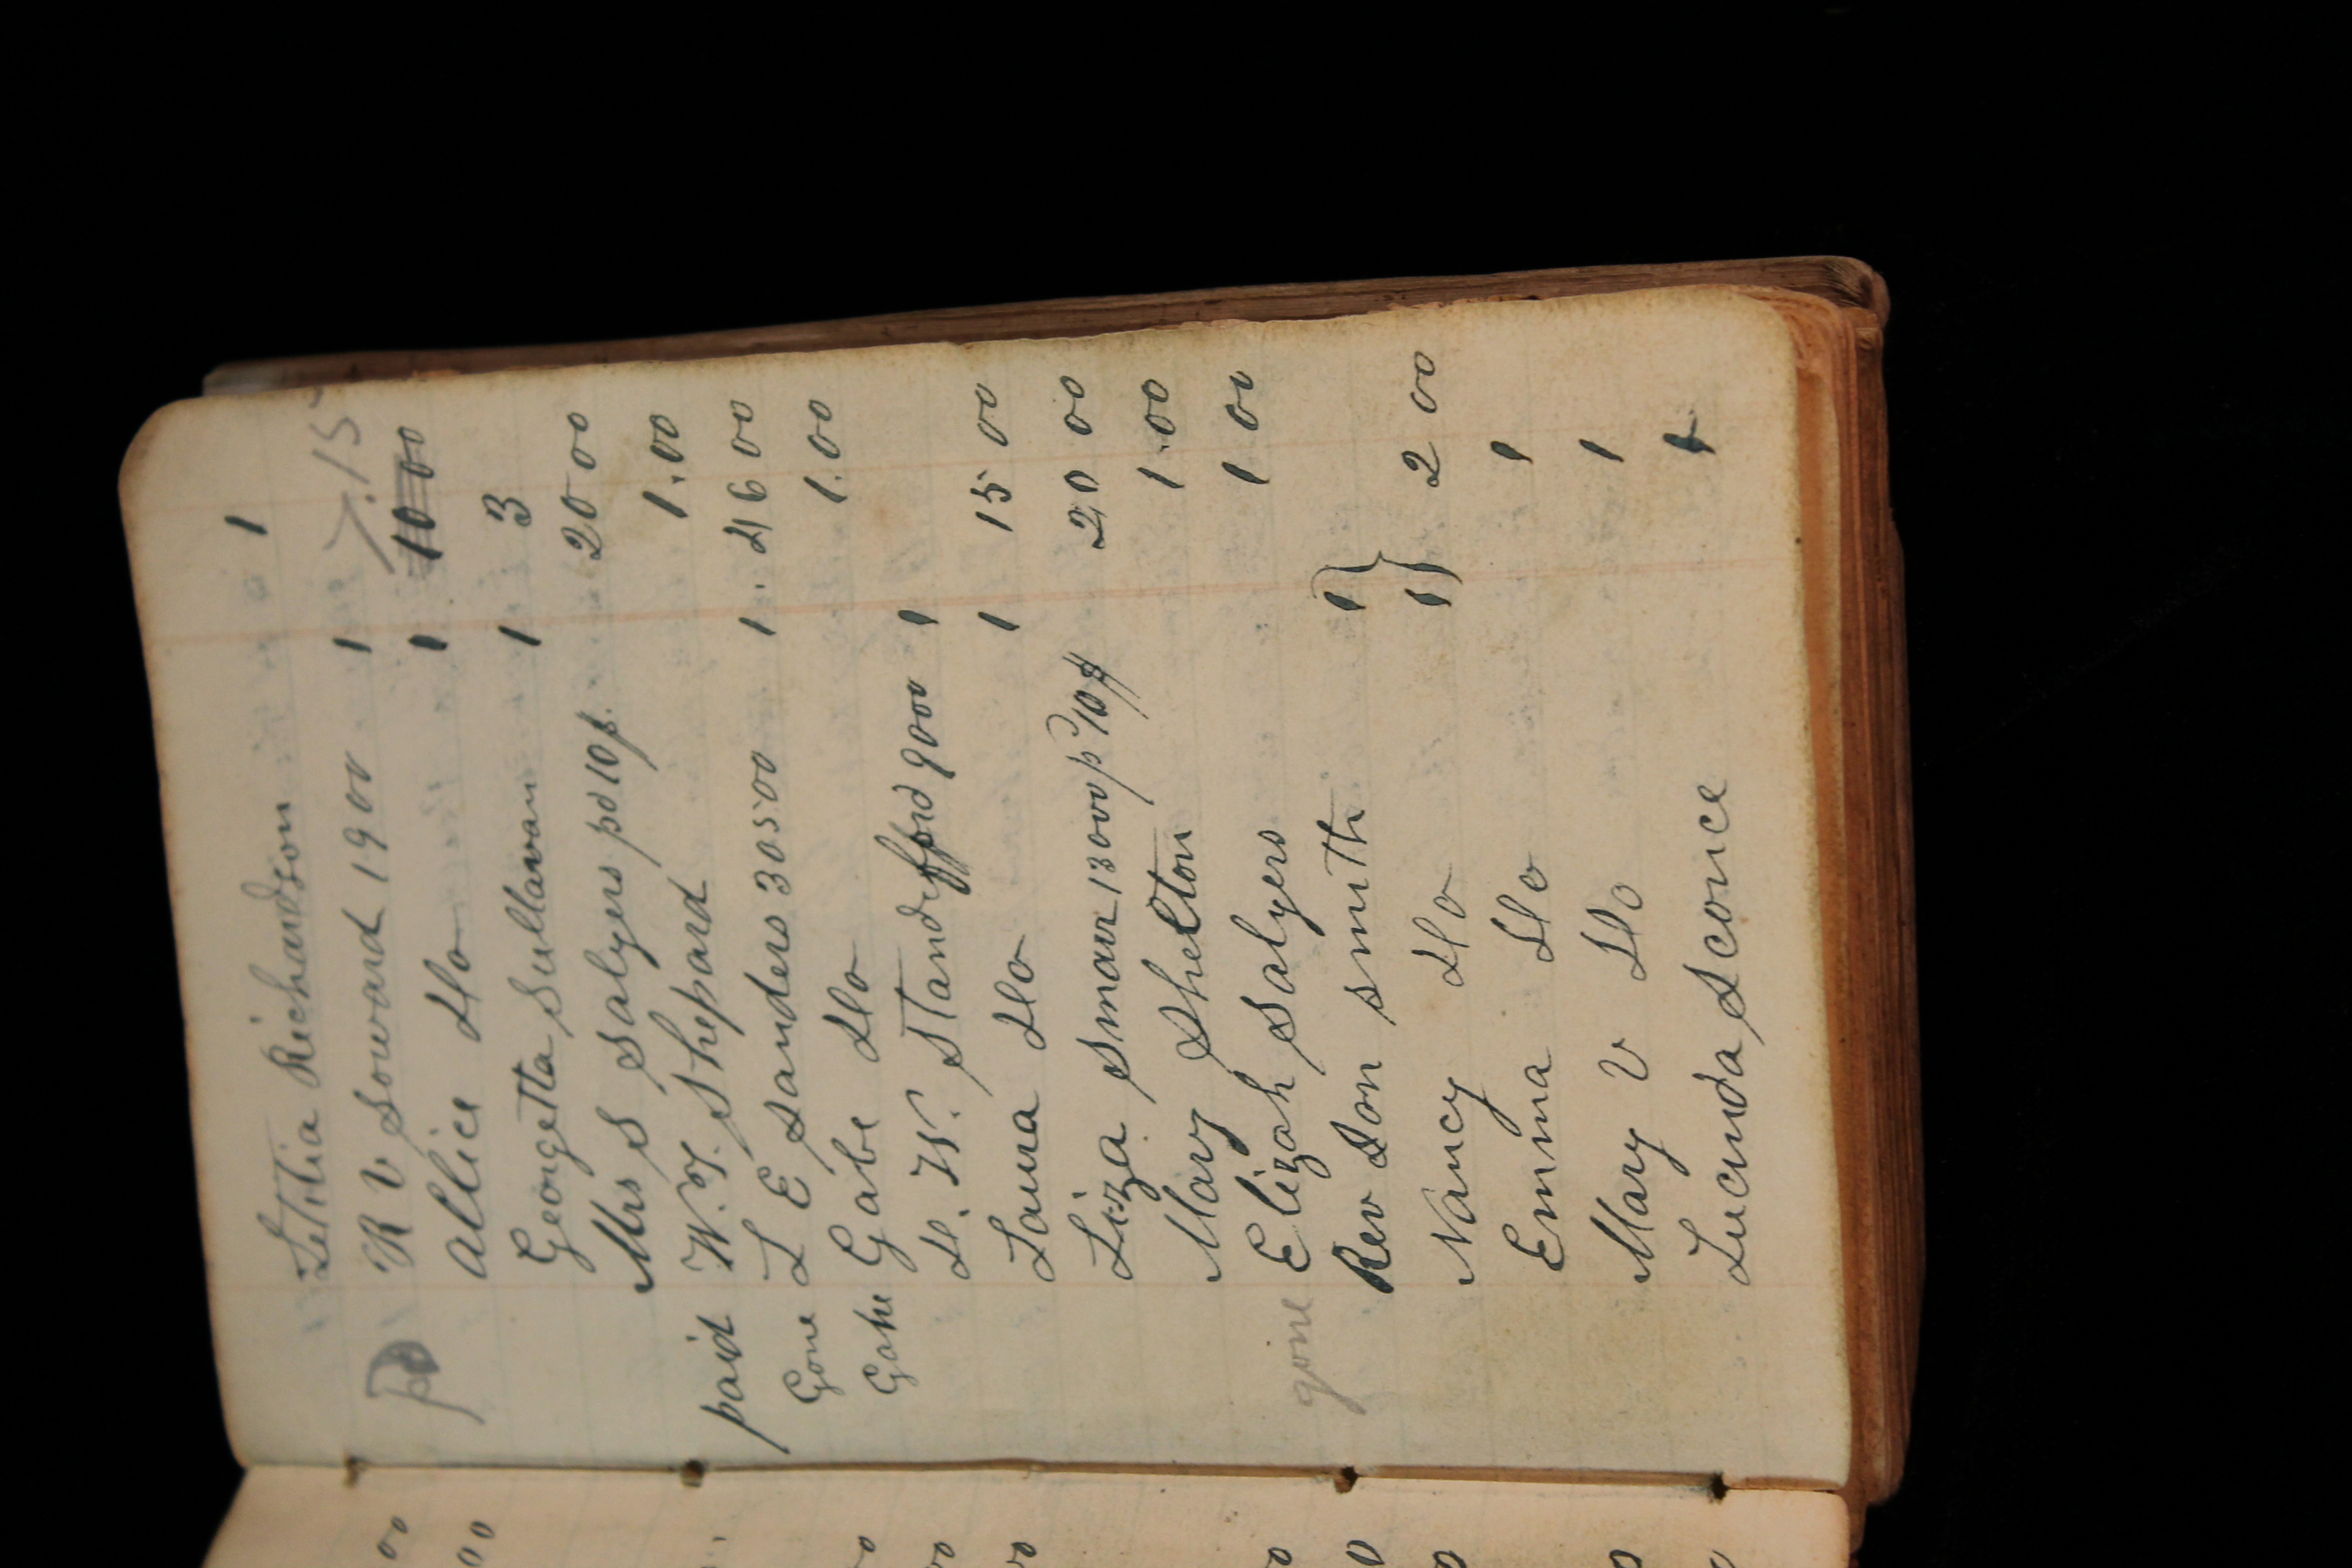 Letitia Richardson 1
pd R V Soward 1900 1 7.15
Allice Do 1 10 00
Georgetta Sullavan 1 3
Mrs S Salyers pd 10 $. 20 00
paid W. T. Shepard 1.00
Gone L E Sanders 30500 1. 46 00
Gone Gabe Do 1.00
D. W. Standefford 9000 1
Laura Do 1 15 00
Liza Smarr 13000 pd 10 $ 20 00
Mary Shelton 1.00
gone Elizah Salyers 1 00
Rev Don Smith 1}
Nancy Do 1} 2 00
Emma Do 1
Mary V Do 1
Lucinda Sconce 1